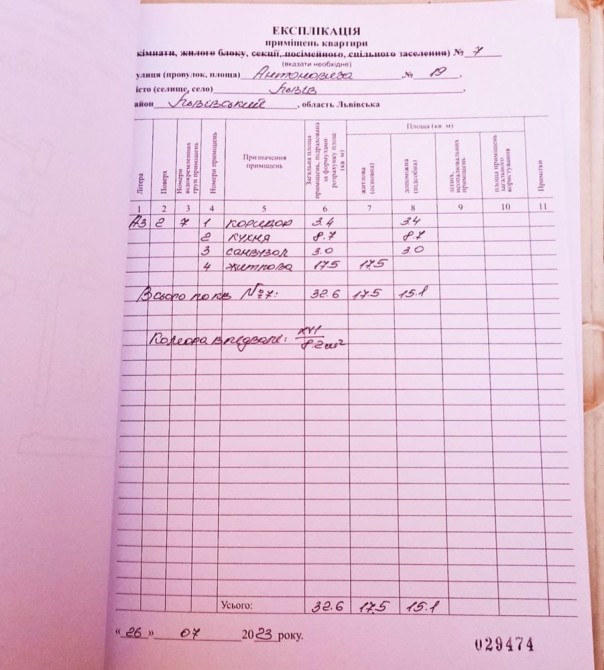 ЕКСПЛІКАЦІЯ
приміщень квартири
кімнати, жилого блоку, секції, посімейного, спільного заселення) № 7
(вказати необхідне)
улиця (провулок, площа) Антоновича № 19
істо (селище, село) Львів
айон Львівський, область Львівська
Літера Поверх Номери відокремлених груп приміщень Номери приміщень Призначення приміщень Загальна площа приміщень, підрахована за формулами розрахунку площ (кв. м) Площа (кв. м)
житлова (основна) допоміжна (підсобна) літніх, неопалювальних приміщень площа приміщень загального користування Примітки
1 2 3 4 5 6 7 8 9 10 11
А3 2 7 1 коридор 3.4 3.4
2 кухня 8.7 8.7
3 санвузол 3.0 3.0
4 житлова 17.5 17.5
Всього по кв №7: 32.6 17.5 15.1
Комора в підвалі: XVI
8.2 м²
Усього: 32.6 17.5 15.1
«26» 07 2023 року.
029474